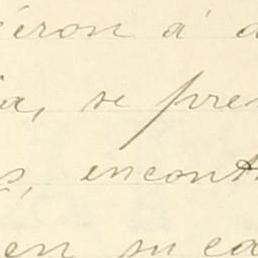 éron á a
ia, se pres
s, encont
en su ca